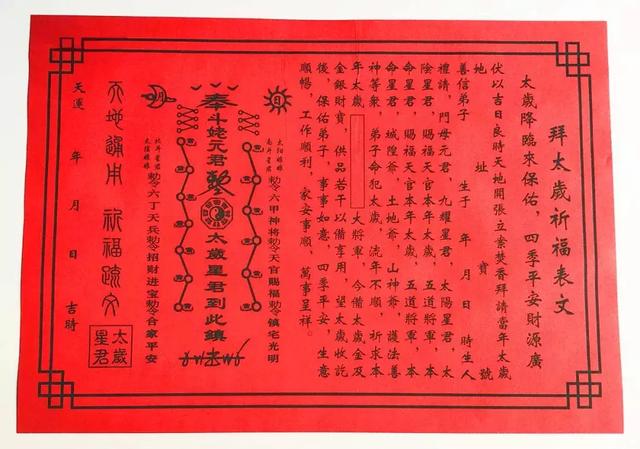 拜太歲祈福表文
太歲降臨來保佑，四季平安財源廣
伏以吉日良時天地開張立案焚香拜請當年太歲
地址寶號
善信弟子生于年月日時生人
禮請，門母元君，九耀星君，太陽星君，太
陰星君，賜福天官本年太歲，五道將軍，本
命星君，賜福天官本年太歲，五道將軍，本
命星君，城隍爺，土地爺，山神爺，護法善
神等衆，弟子命犯太歲，流年不順，祈求本
年太歲大將軍，今備太歲金及
金銀財寶，供品若干以備享用，望太歲收訖
後，保佑弟子，事事如意，四季平安，生意
順暢，工作順利，家安事順，萬事呈祥。
日
太陽娘娘
南斗星君
勅令六甲神将勅令天官賜福勅令鎮宅光明
奉斗姥元君勅太歲星君到此鎮
月
北斗星君
太陰娘娘
勅令六丁天兵勅令招財进宝勅令合家平安
天地通用祈福疏文
太歲
星君
天運年月日吉時